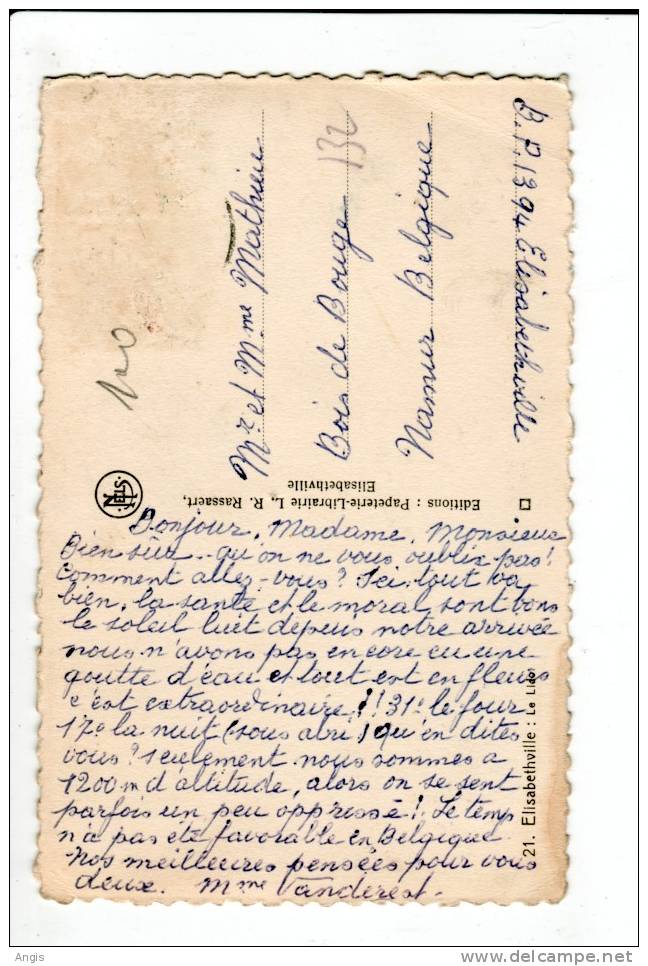 B.P. 1394 Elisabethville
Mr et Mme Mathieu
Bois de Bouge 132
Namur Belgique
100
NELS
Editions : Papeterie-Librairie L. R. Rassaert,
Elisabethville
21. Elisabethville : Le Lido
Bonjour, Madame, Monsieur
Bien sûr.. qu'on ne vous oublie pas!
Comment allez-vous? Ici tout va
bien, la santé et le moral sont bons
le soleil luit depuis notre arrivée
nous n'avons pas encore eu une
goutte d'eau et tout est en fleurs
c'est extraordinaire!! 31° le jour
17° la nuit (sous abri) qu'en dites
vous? seulement nous sommes à
1200m d'altitude, alors on se sent
parfois un peu oppressé! Le temps
n'a pas été favorable en Belgique
Nos meilleures pensées pour vous
deux. Mme Vanderest.
Angis
delcampe.net